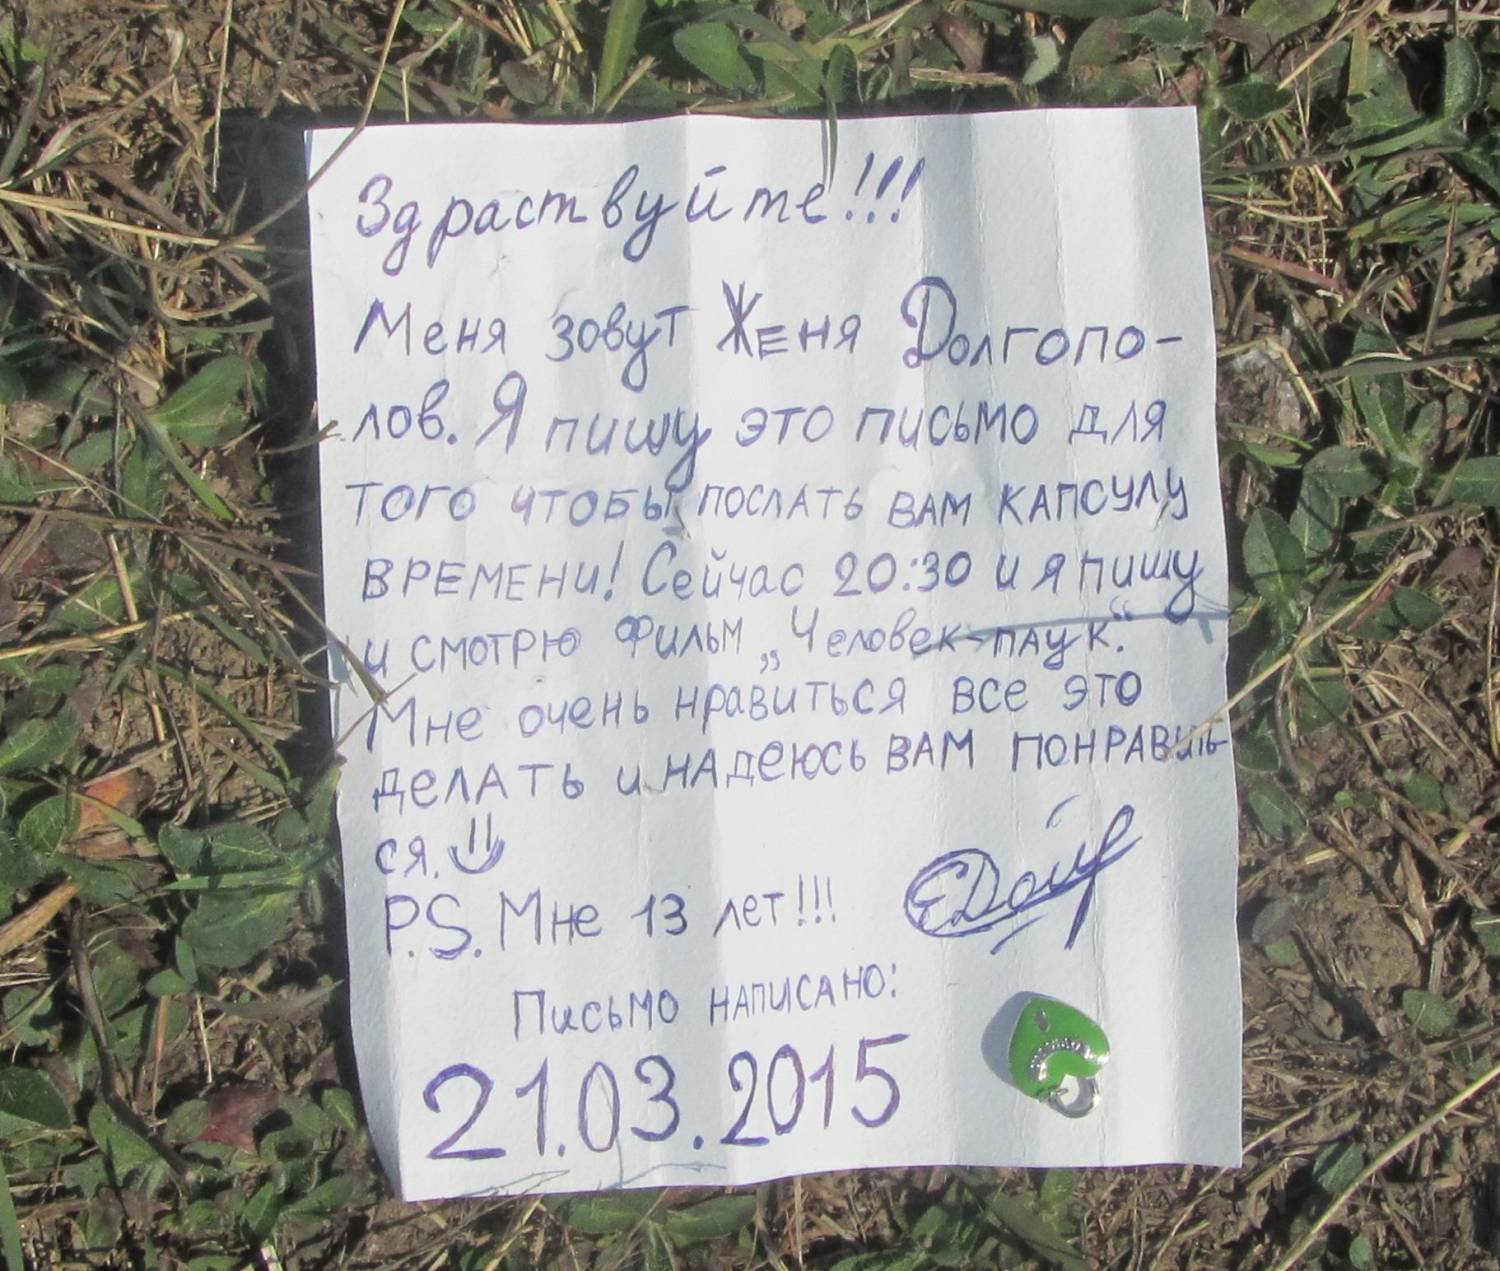 Здраствуйте!!!
Меня зовут Женя Долгопо-
лов. Я пишу это письмо для
того чтобы послать вам капсулу
времени! Сейчас 20:30 и я пишу
и смотрю фильм „Человек-паук“.
Мне очень нравиться все это
делать и надеюсь вам понравить-
ся.
P.S. Мне 13 лет!!!
Письмо написано:
21.03.2015